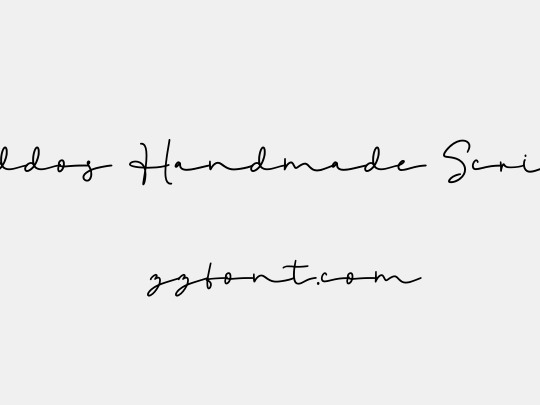 ddos Handmade Scri
zzfont.com